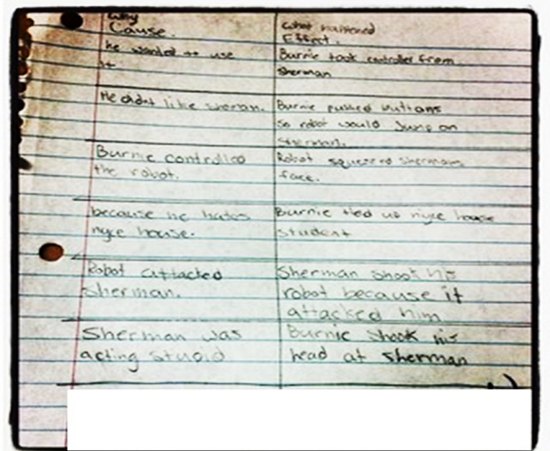 Why
Cause.
what happened
Effect.
he wanted to use
it
Burnie took controller from
sherman
He didnt like sherman.
Burnie pushed buttons
so robot would jump on
sherman.
Burnie controlled
the robot.
Robot squeezed shermans
face.
because he hates
nyce house.
Burnie tied up nyce house
student
Robot attacked
sherman.
Sherman shook his
robot because it
attacked him
Sherman was
acting stupid
Burnie shook his
head at sherman